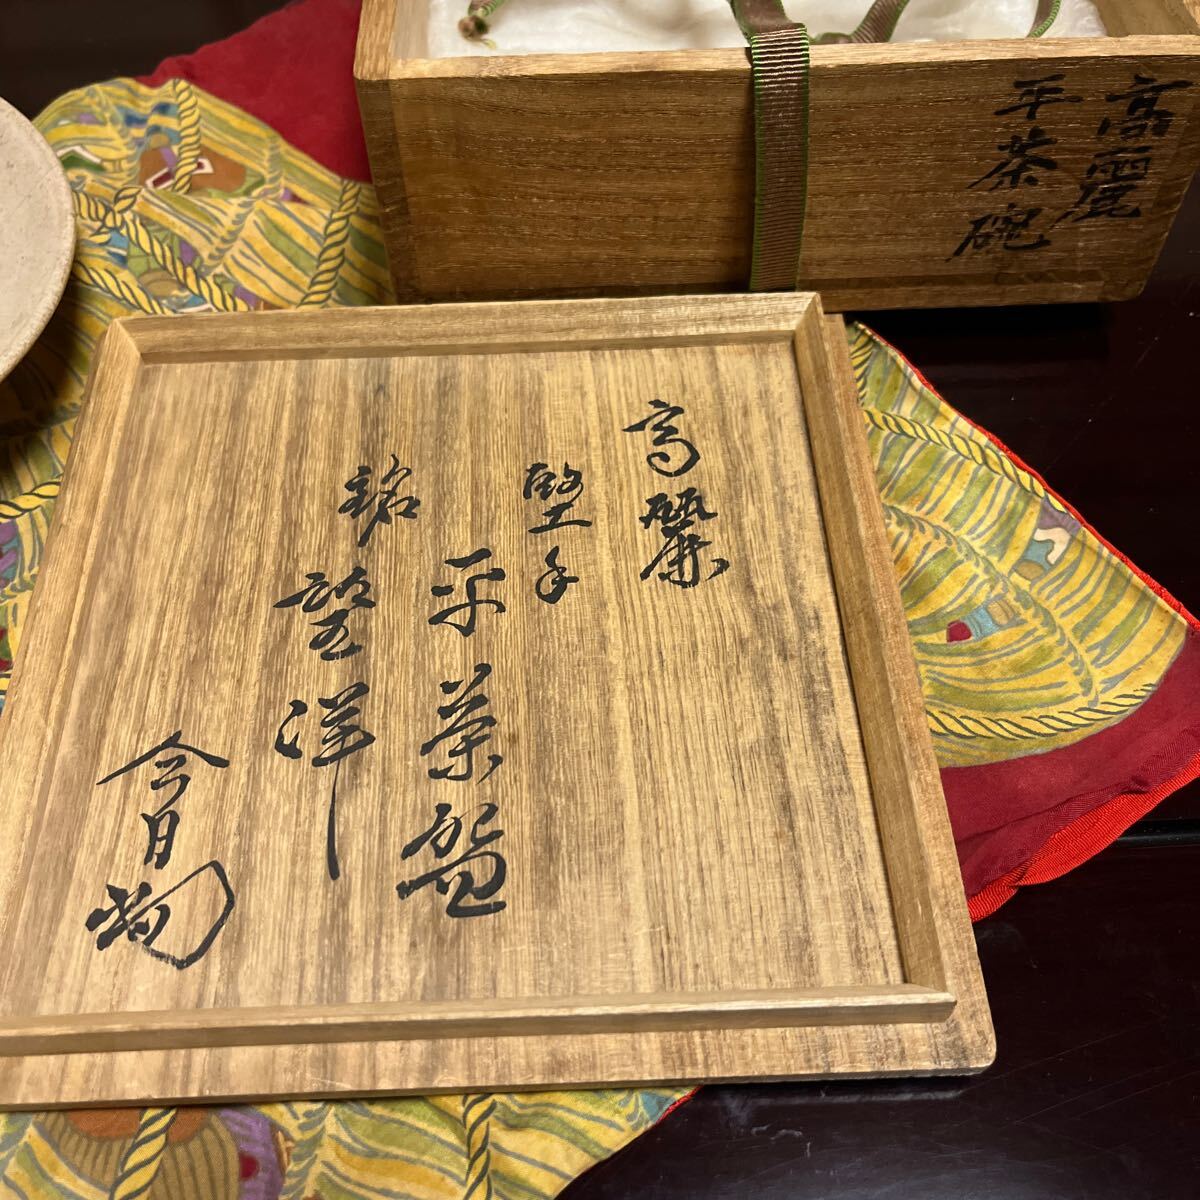 高麗
平茶碗
高麗
堅手
平茶盌
銘
望洋
今日